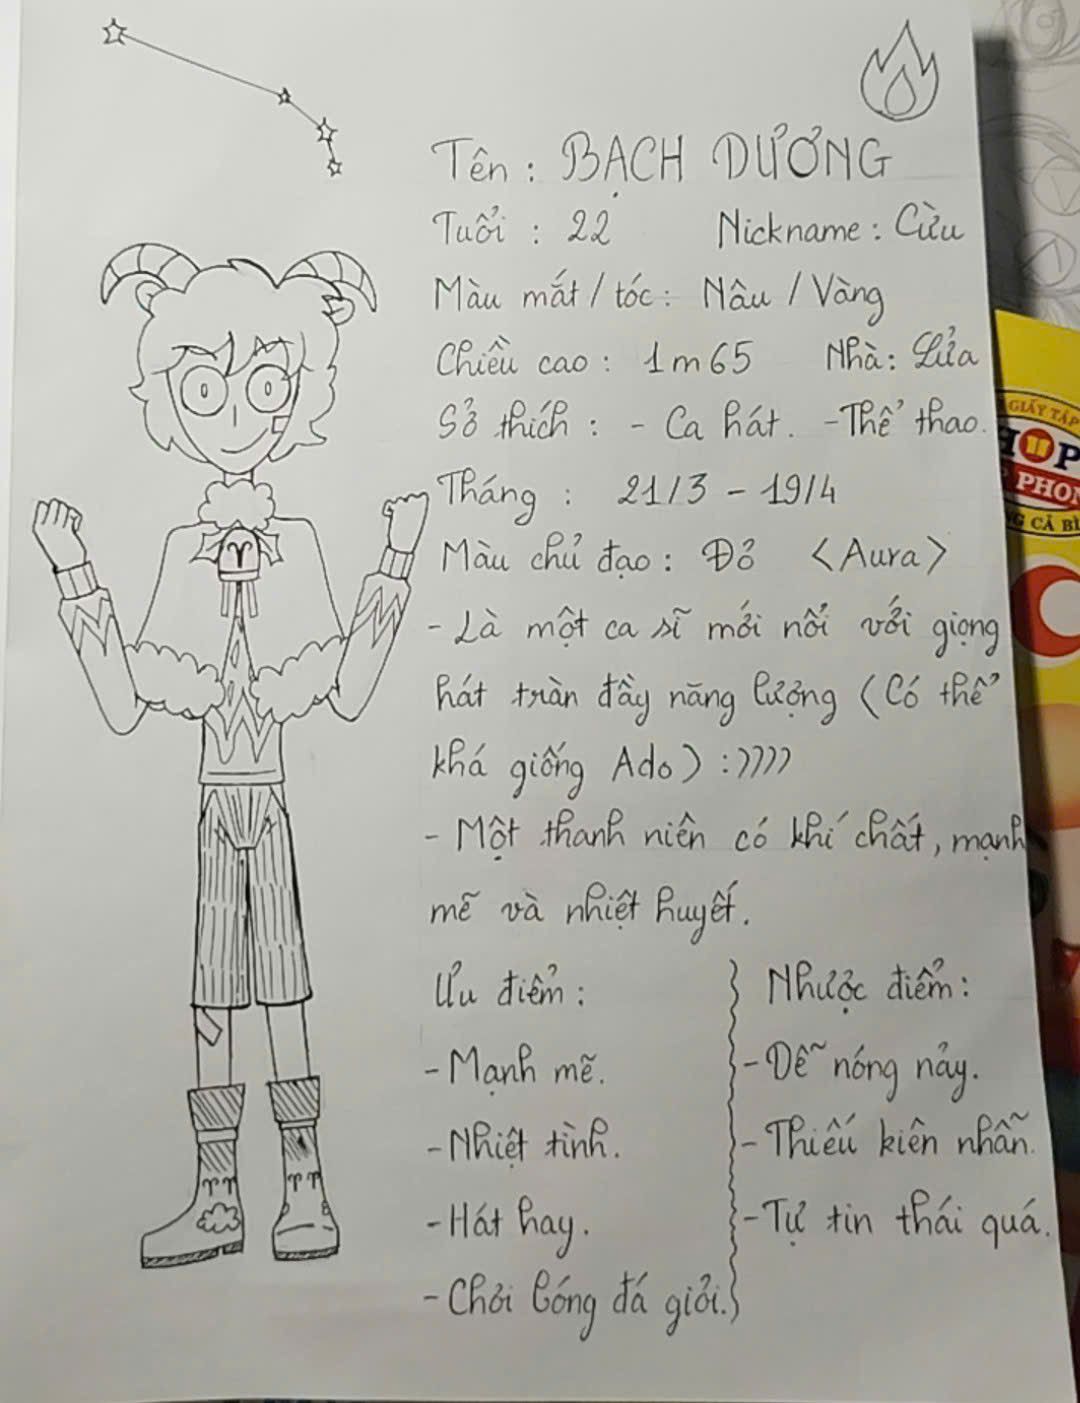 Tên : BẠCH DƯƠNG
Tuổi : 22 Nickname : Cừu
Màu mắt / tóc : Nâu / Vàng
Chiều cao : 1m65 Nhà : Lửa
Sở thích : - Ca hát. - Thể thao.
Tháng : 21/3 - 19/4
Màu chủ đạo : Đỏ <Aura>
- Là một ca sĩ mới nổi với giọng
hát tràn đầy năng lượng (Có thể
khá giống Ado) :))))
- Một thanh niên có khí chất, mạnh
mẽ và nhiệt huyết.
Ưu điểm : Nhược điểm :
- Mạnh mẽ. - Dễ nóng nảy.
- Nhiệt tình. - Thiếu kiên nhẫn.
- Hát hay. - Tự tin thái quá.
- Chơi bóng đá giỏi.
GIẤY TẬP
PHON